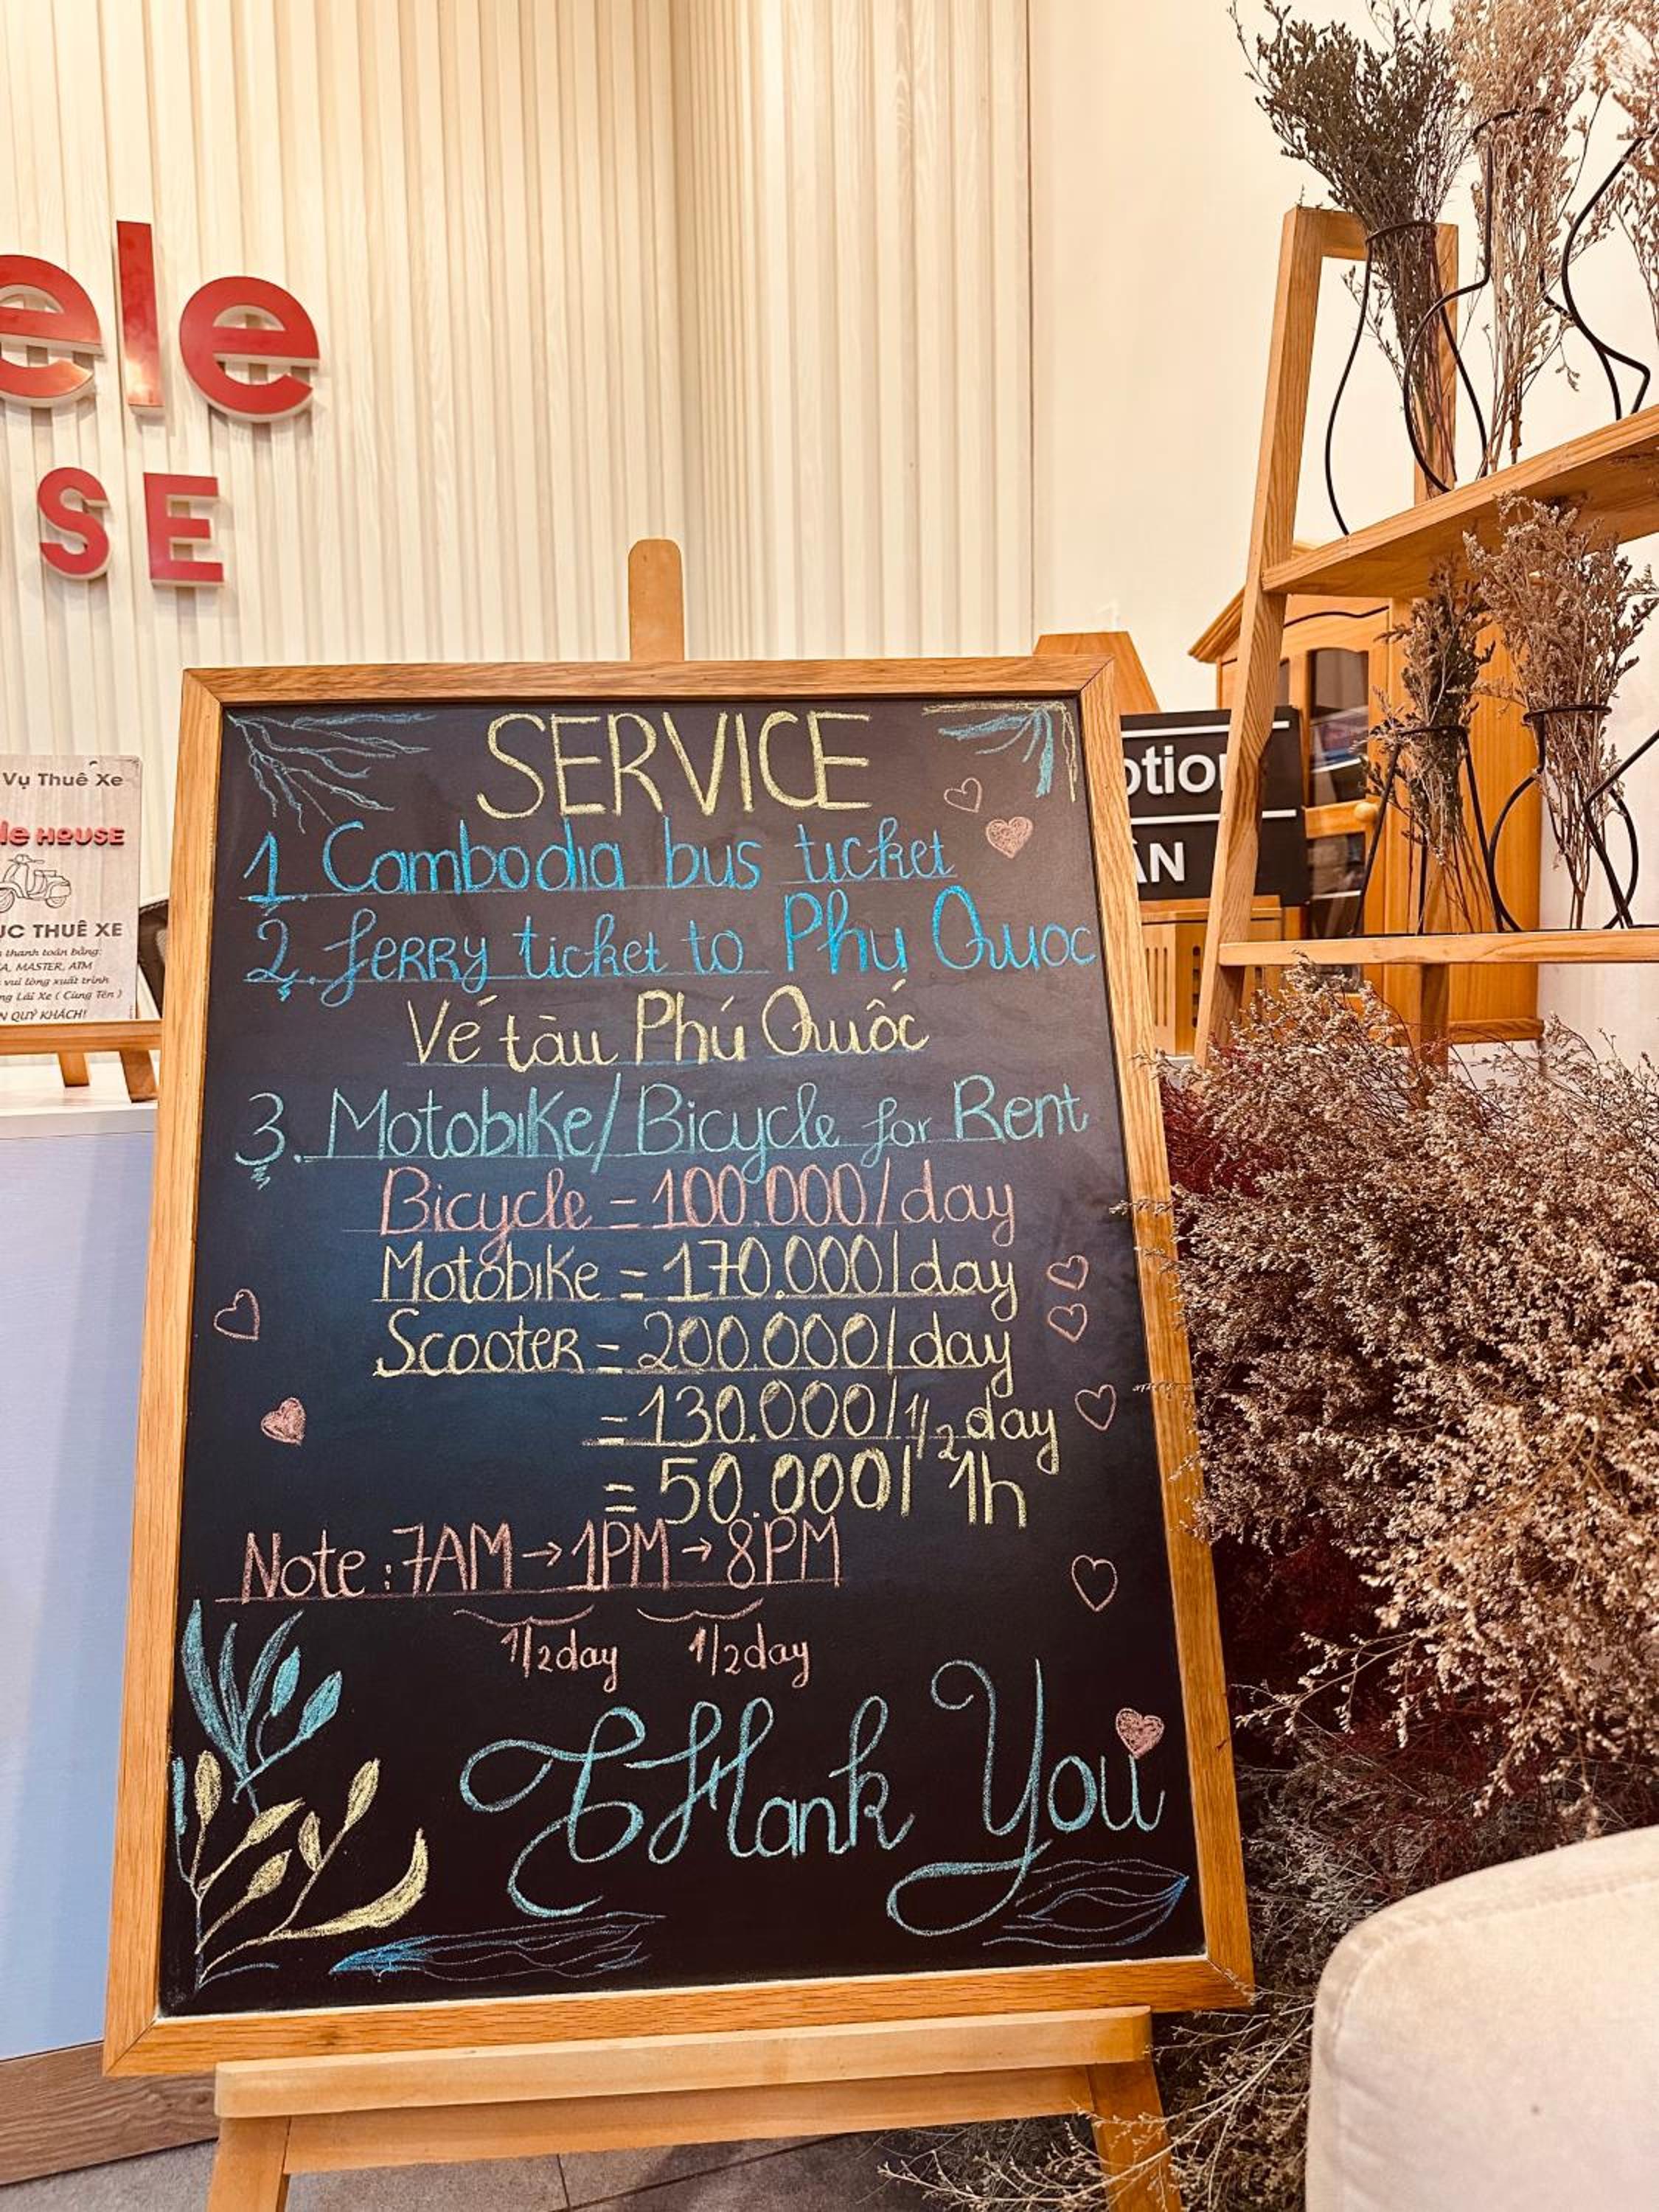 ele
SE
Vụ Thuê Xe
le HOUSE
ỤC THUÊ XE
thanh toán bằng:
A, MASTER, ATM
vui lòng xuất trình
ng Lái Xe ( Cùng Tên )
N QUÝ KHÁCH!
ption
ÂN
SERVICE
1. Cambodia bus ticket
2. Ferry ticket to Phu Quoc
Vé tàu Phú Quốc
3. Motobike/Bicycle for Rent
Bicycle = 100.000/day
Motobike = 170.000/day
Scooter = 200.000/day
= 130.000/1/2 day
= 50.000/ 1h
Note: 7AM → 1PM → 8PM
1/2day 1/2day
Thank You